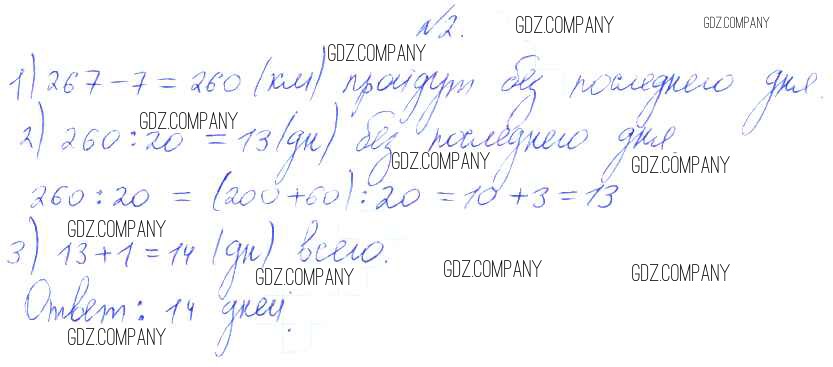 №2. GDZ.COMPANY GDZ.COMPANY
GDZ.COMPANY
1) 267-7=260 (км) пройдут без последнего дня.
GDZ.COMPANY
2) 260:20 = 13 (дн) без последнего дня
GDZ.COMPANY GDZ.COMPANY
260:20 = (200+60):20 =10+3=13
GDZ.COMPANY
3) 13+1=14 (дн) всего.
GDZ.COMPANY GDZ.COMPANY GDZ.COMPANY
Ответ: 14 дней.
GDZ.COMPANY